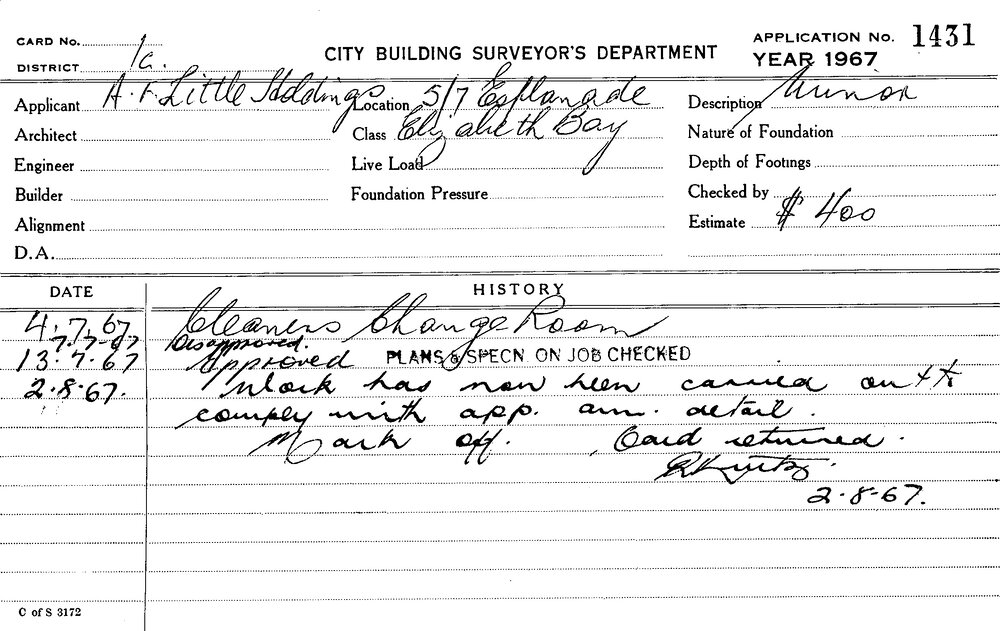 CARD No.
DISTRICT 1a.
CITY BUILDING SURVEYOR'S DEPARTMENT
APPLICATION No. 1431
YEAR 1967
Applicant A. F. Little Holdings
Location 5/7 Esplanade
Description Minor
Architect
Class Elizabeth Bay
Nature of Foundation
Engineer
Live Load
Depth of Footings
Builder
Foundation Pressure
Checked by
Alignment
Estimate $ 400
D.A.
DATE HISTORY
4.7.67 Cleaners Change Room
7.7.67 Disapproved.
13.7.67 Approved PLANS & SPECN. ON JOB CHECKED
2.8.67. Work has now been carried out to
comply with app. am. detail.
Mark off. Card returned.
2.8.67.
C of S 3172